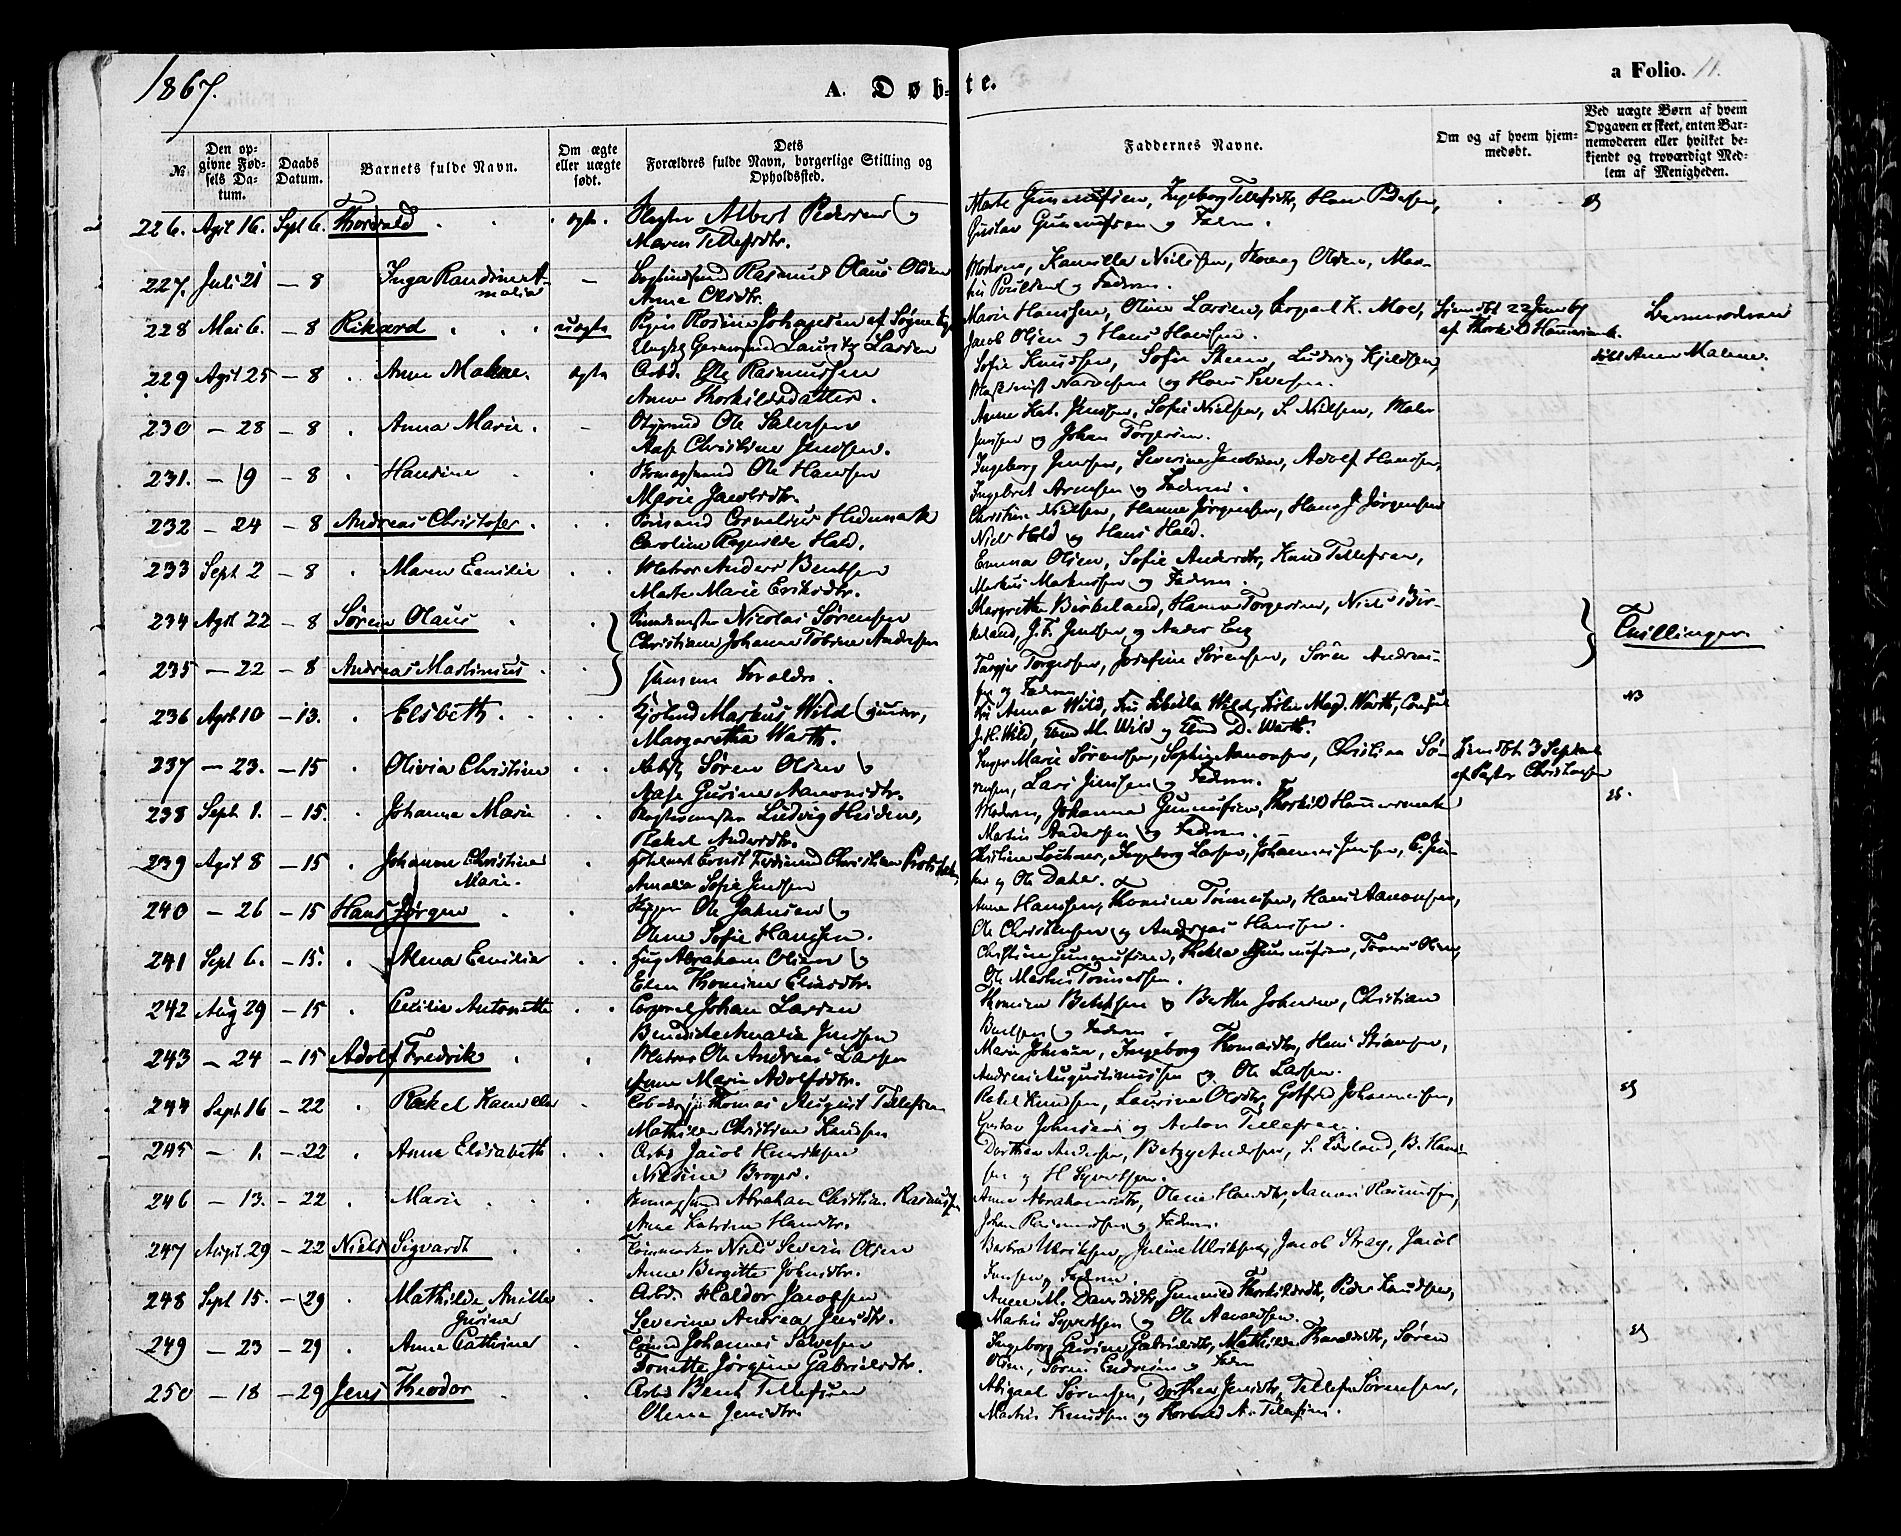 1867.
A. Døbte.
a Folio. 11.
№
Den opgivne Fødsels Datum.
Daabs Datum.
Barnets fulde Navn.
Om ægte eller uægte født.
Dets Forældres fulde Navn, borgerlige Stilling og Opholdssted.
Faddernes Navne.
Om og af hvem hjemmedøbt.
Ved uægte Børn af hvem Opgaven er skeet, enten Barnemoderen eller hvilket bekjendt og troværdigt Medlem af Menigheden.
226. Agst 16. Sept 6. Thorvald ægte Albert Pedersen og
Maren Tellefsdtr.
Marte Gunnufsen, Ingeborg Tellefsdtr, Hans Pedersen,
Gustav Gunnufsen og Faderen.
227. Juli 21 – 8 Inga Randine Amalia – Rasmus Olaus Olsen
Anne Olsdtr.
Moderen, Kamilla Nielsen, Olsen, Martin Poulsen og Faderen.
228 Mai 6. – 8 Rikard uægte Pigen Rosine Johannesen af Søgne og
Ungk. Lauritz Larsen
Marie Hanssen, Oline Larsen, K. Moe,
Jacob Olsen og Hans Hansen.
Hjemdbt 22 Juni 67
af Thorkil O Hammersmk.
Barnemoderen
229 Agst 25 – 8 Anne Malene. ægte Arbd. Ole Rasmussen
Anne Thorkildsdatter.
Sofie Knudsen, Sofie Steen, Ludvig Kjeldsen,
og Hans Iversen.
døbt Anne Malene.
230 – 28 – 8 Anna Marie. – Styrmd Ole Salvesen
Aase Christine Jensen.
Anne Kat. Jenssen, Sofie Nielsen, S. Nielsen, Maler
Jenssen og Johan Torgersen.
231. – 19 – 8 Hansine Ole Hansen
Marie Jacobsdtr.
Ingeborg Jenssen, Severine Jacobsen, Adolf Hanssen,
Ingebret Arnesen og Faderen.
232 – 24 – 8 Andreas Christofer Cornelius Hedemark
Caroline Ragnilde Hald.
Christine Nielsen, Hanne Jørgensen, Hans J Jørgensen
Niels Hald og Hans Hald.
233 Sept 2 – 8 Maren Emilie Matros Anders Bentsen
Marte Marie Eriksdtr.
Emma Olsen, Sofie Andersdtr, Knud Tellefsen,
Markus Markussen og Faderen.
234 Agst 22 – 8 Søren Olaus Nicolai Sørensen
Christiane Johanne Tobine Andresen
Margrethe Birkeland, Hanne Torgersen, Niels Birkeland, J. F. Jenssen og Anders Eeg
Tvillinger.
235 – 22 – 8 Andreas Martinius samme Foreldre.
Torgersen, Josefine Sørensen, Søren Andreassen og Faderen
236 Agst. 10 – 13. Elsbeth Markus Wild
Margaretha Warth.
Fru Anna Wild, Fru Sibella Wild, Frøken Mag. Warth, Consul
J. H. Wild, M. Wild og D. Warth.
NB
237 – 23. – 15 Olivia Christine Arbd Søren Olsen og
Aase Gurine Aanonsdtr.
Inger Marie Sørensen, Sophie Aanonsen, Christine Sørensen, Lars Jensen og Faderen.
Hjemdbt 3 Septemb
af Pastor Christensen
238 Sept 1. – 15. Johanne Marie Ludvig Heiden,
Rakel Andersdtr.
Moderen, Johanne Gunnufsen, Thorkild Hammersmark
Martin Andersen og Faderen.
239 Agst 8 – 15 Johanne Christine Marie. Ernst Ferdinand Christian
Amalia Sofie Jensen
Christine Lochner, Ingeborg Larsen, Johannes Jensen, og Ole Dahler.
240 – 26 – 15 Hans Jørgen Skipper Ole Johnsen og
Olene Sofie Hanssen.
Anne Hanssen, Thomine Tønnessen, Hans Aanonsen,
Ole Christensen og Andreas Hanssen.
241 Sept 6. – 15. Alena Emilia Abraham Olsen og
Elen Thomine Eliasdtr.
Christine Gunnufsen, Thekla Gunnufsen, Tønnes Olsen,
Ole Martin Tønnessen.
242 Aug 29 – 15 Cecilie Antonette Corporal Johan Larsen
Benedicte Amalia Jenssen
Thomine Bentsen og Berthe Johnsen, Christian
Bentsen og Faderen.
243 – 24 – 15 Adolf Fredrik Matros Ole Andreas Larsen
Anne Marie Adolfsdtr.
Marie Johnsen, Ingeborg Thomasdtr, Hans Stiansen,
Andreas Augustinussen og Ole Larsen.
244 Sept 16 – 22 Rakel Kamilla Thomas August Tellefsen
Mathilde Christine Knudsen
Rakel Knudsen, Laurine Olsdtr, Gotfred Johannesen,
Gustav Johnsen og Anton Tellefsen.
245 – 1. – 22 Anne Elisabeth Arbd Jacob Henriksen
Nilsine Broger.
Dorthea Andersen, Betzy Andersen, B. Hansen og H Syvertsen.
246 – 13. – 22 Marie Abraham Christian Rasmussen
Anne Katrine Hansdtr.
Anne Abrahamsdtr, Olene Hansdtr, Aanon Rasmussen,
Johan Rasmussen og Faderen.
247 August. 29 – 22 Niels Sigvardt Tømmermd Niels Severin Olsen
Anne Birgitte Johnsdtr.
Barbra Ulriksen, Juline Ulriksen, Jacob Stray, Jacob
Jensen og Faderen.
248 Sept 15. – 29 Mathilde Amilla Gurine Arbd. Haldor Jacobsen
Severine Andrea Jensdtr.
Anne M. Davidsdtr, Gunnild Thorkildsdtr, Peder Knudsen,
Martin Syvertsen og Ole Aanonsen.
249 – 23 – 29 Anne Cathrine Johannes Salvesen
Tonette Jørgine Gabrielsdtr.
Ingeborg Gurine Gabrielsdtr, Mathilde Haraldsdtr, Søren
Olsen, Søren Endresen og Faderen
250 – 18 – 29 Jens Theodor Arbd Bent Tellefsen
Olene Jensdtr
Abigael Sørensen, Dorthea Jensdtr, Tellef Sørensen,
Martin Knudsen og A. Tellefsen.